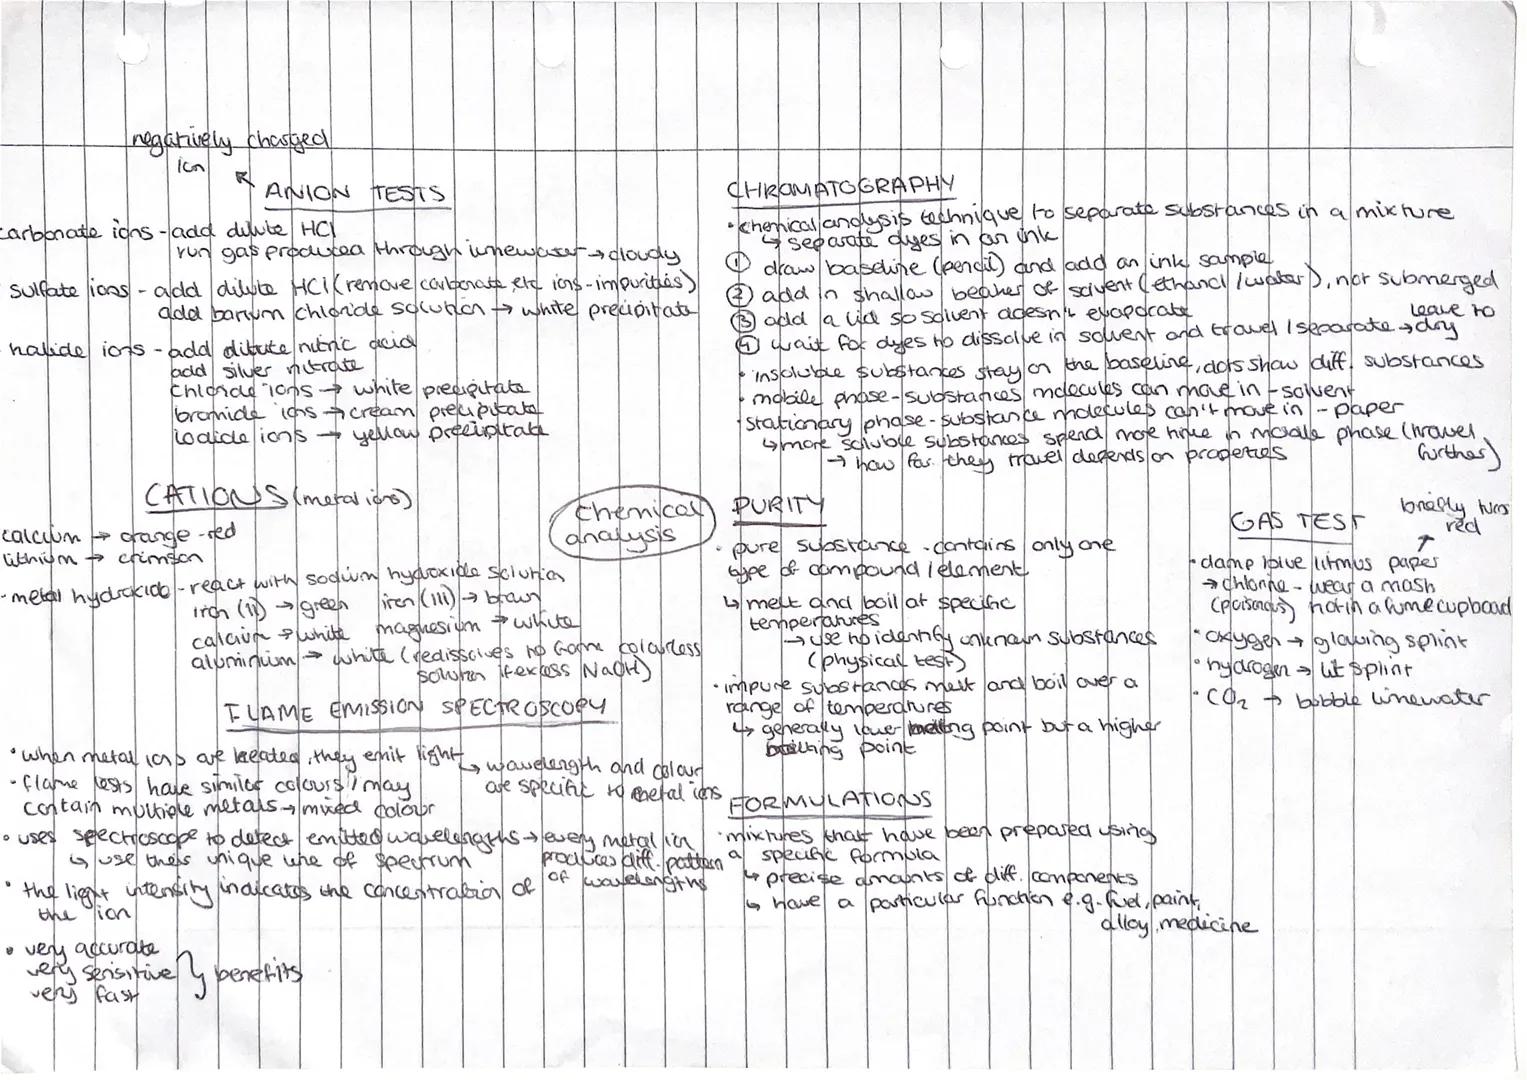 negatively charged
ion
ANION TESTS
carbonate ions - add dilute HCl
run gas produced through limewater → cloudy
sulfate ions - add dilute HCl (remove carbonate etc ions - impurities)
add barium chloride solution → white precipitate
halide ions - add dilute nitric acid
add silver nitrate
chloride ions → white precipitate
bromide ions → cream precipitate
iodide ions → yellow precipitate
CATIONS (metal ions)
calcium → orange-red
lithium → crimson
- metal hydroxide - react with sodium hydroxide solution
iron (II) → green iron (III) → brown
calcium → white magnesium → white
aluminium → white (redissolves to form colourless
solution if excess NaOH)
Chemical
analysis
FLAME EMISSION SPECTROSCOPY
• when metal ions are heated, they emit light
↳ wavelength and colour
are specific to metal ions
• flame tests have similar colours / may
contain multiple metals → mixed colour
• uses spectroscope to detect emitted wavelengths → every metal ion
produces diff. pattern
of wavelengths
↳ use their unique line of spectrum
• the light intensity indicates the concentration of
the ion
• very accurate
very sensitive
very fast
} benefits
CHROMATOGRAPHY
• chemical analysis technique to separate substances in a mixture
↳ separate dyes in an ink
① draw baseline (pencil) and add an ink sample
② add in shallow beaker of solvent (ethanol / water), not submerged
③ add a lid so solvent doesn't evaporate
④ wait for dyes to dissolve in solvent and travel / separate → leave to
dry
• insoluble substances stay on the baseline, dots show diff. substances
• mobile phase - substances molecules can move in - solvent
• stationary phase - substance molecules can't move in - paper
↳ more soluble substances spend more time in mobile phase (travel
further)
→ how far they travel depends on properties
PURITY
• pure substance - contains only one
type of compound / element
↳ melt and boil at specific
temperatures
→ use to identify unknown substances
(physical test)
• impure substances melt and boil over a
range of temperatures
↳ generally lower melting point but a higher
boiling point
GAS TEST
briefly turns
red
• damp blue litmus paper
→ chlorine - wear a mask
(poisonous) not in a fume cupboard
• oxygen → glowing splint
• hydrogen → lit splint
• CO₂ → bubble limewater
FORMULATIONS
• mixtures that have been prepared using
a specific formula
↳ precise amounts of diff. components
↳ have a particular function e.g. fuel, paint,
alloy, medicine